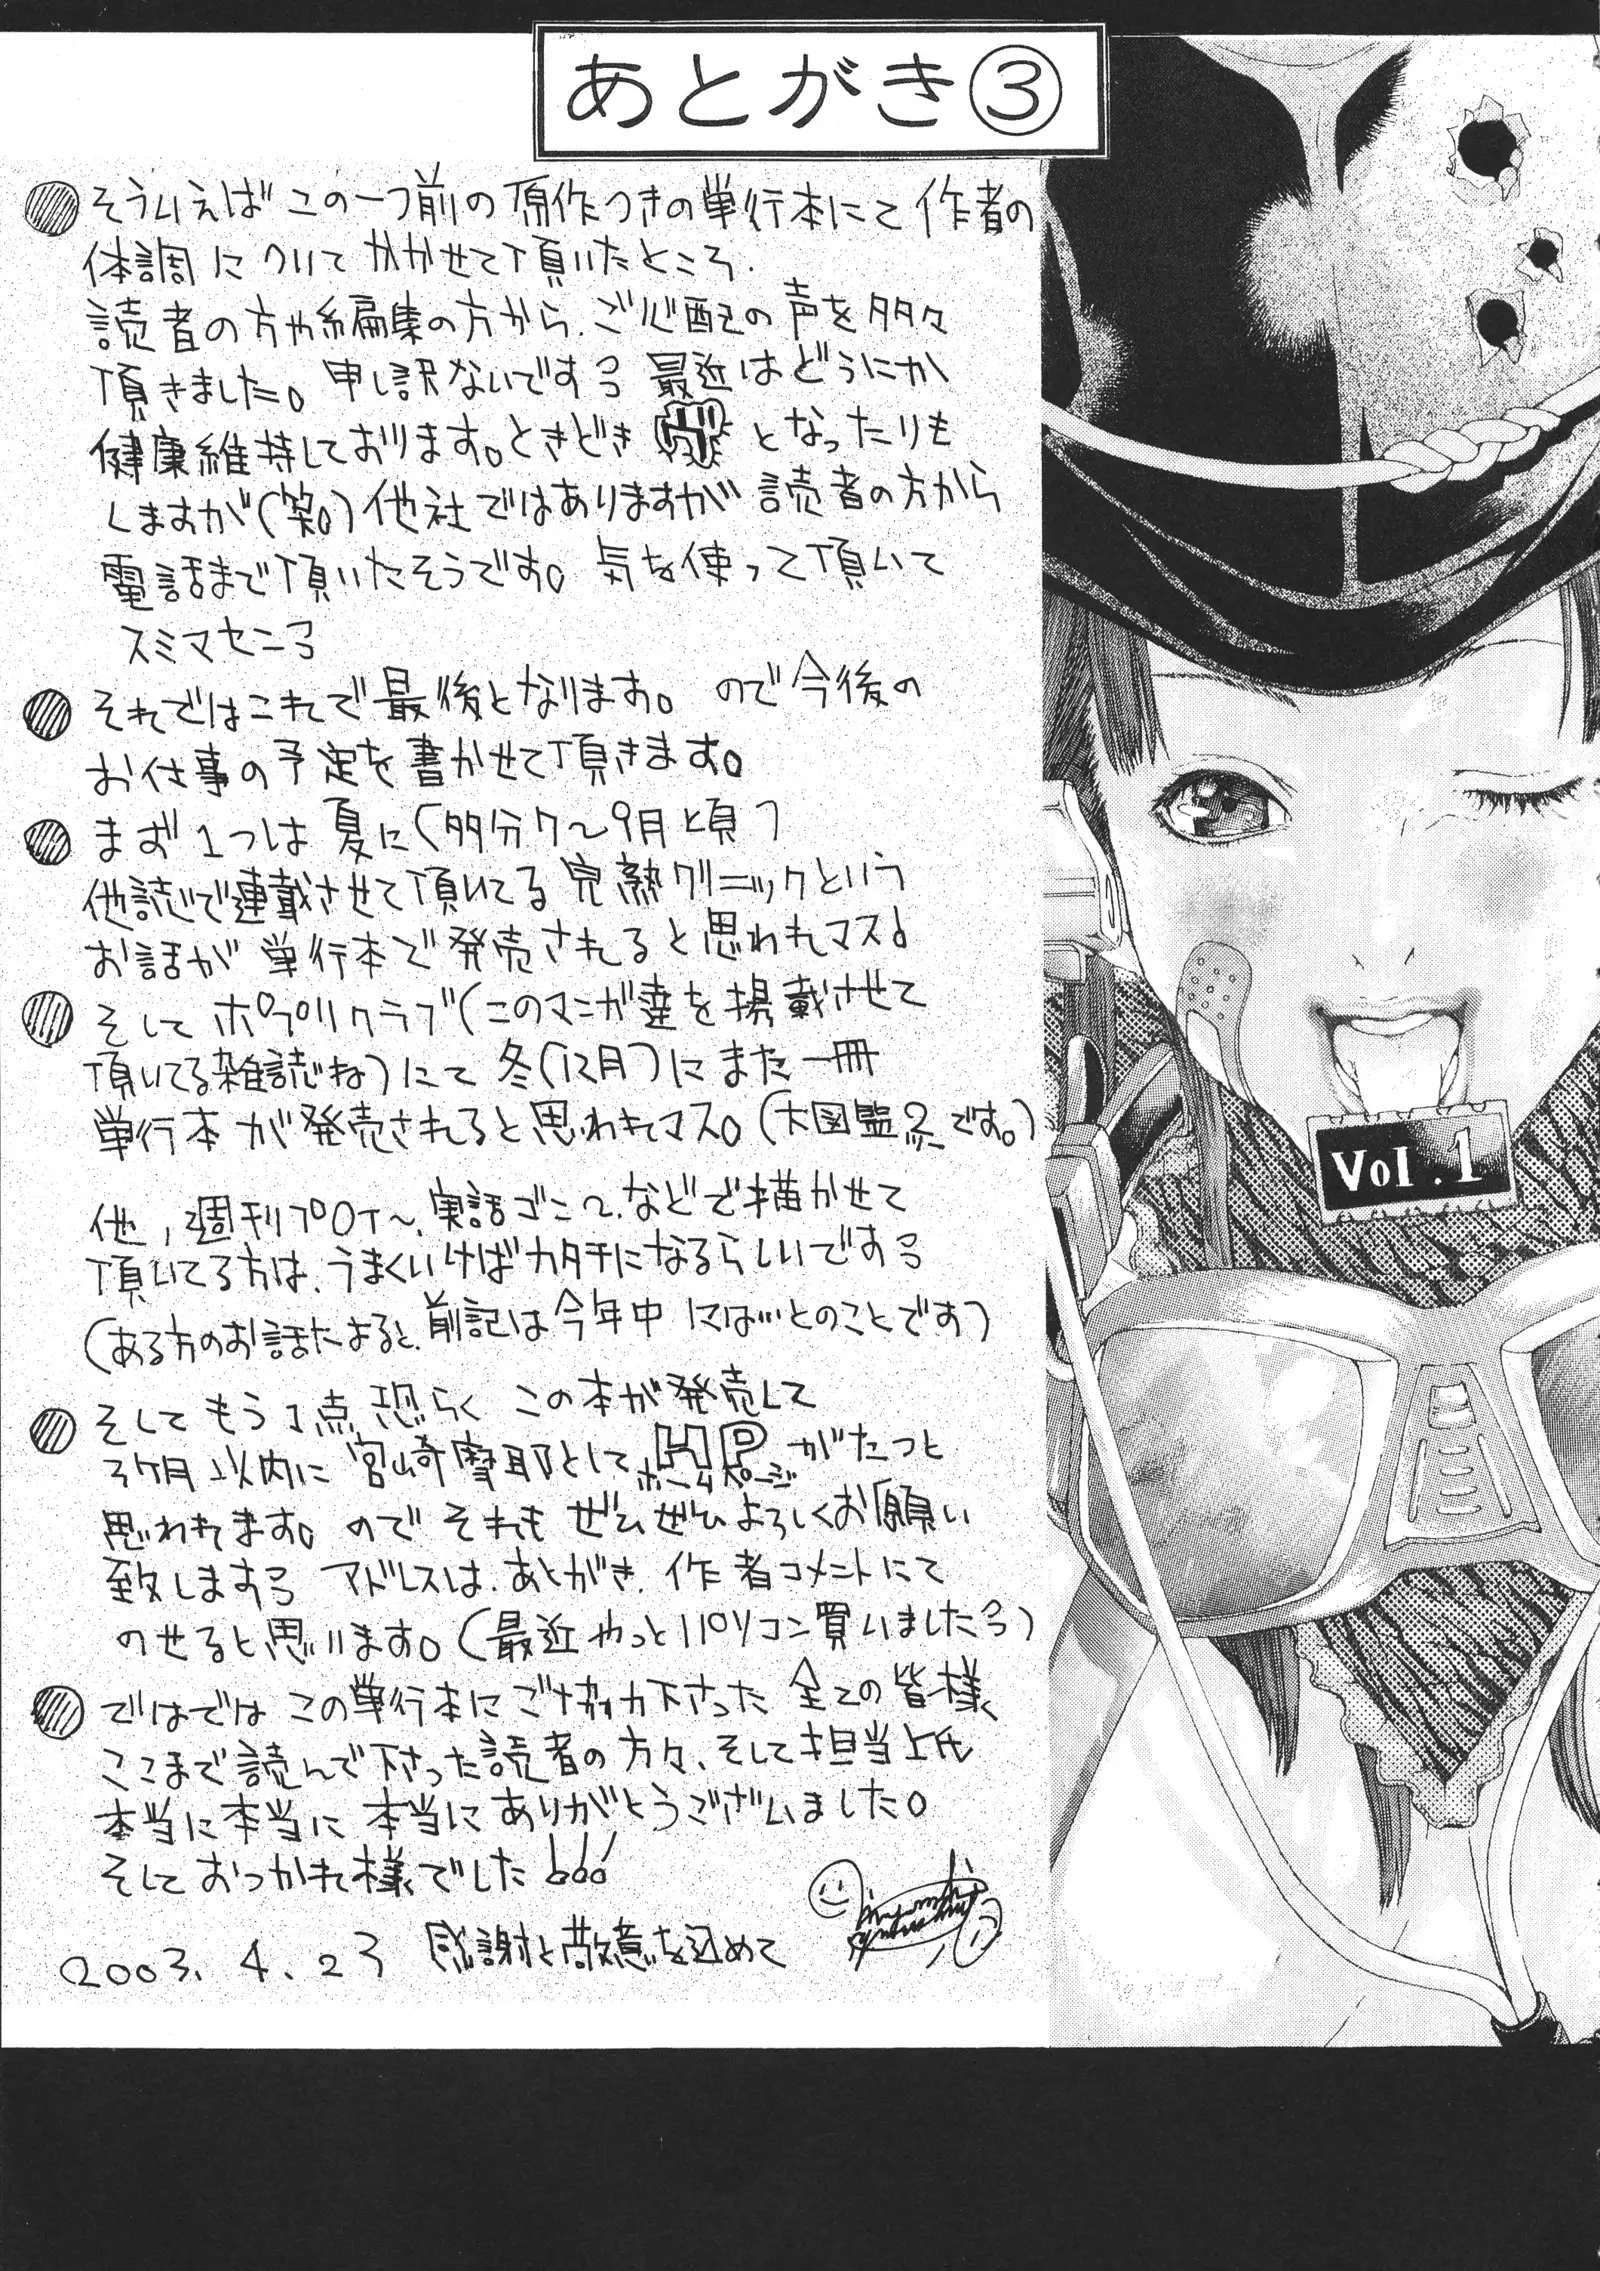 あとがき③
そういえばこの一つ前の原作つきの単行本にて作者の
体調についてかかせて頂いたところ、
読者の方や編集の方から、ご心配の声を多々
頂きました。申し訳ないですっ 最近はどうにか
健康維持しております。ときどき となったりも
しますが(笑)他社ではありますが読者の方から
電話まで頂いたそうです。気を使って頂いて
スミマセンっ
それではこれで最後となります。ので今後の
お仕事の予定を書かせて頂きます。
まず1つは夏に(多分7〜9月頃)
他誌で連載させて頂いてる完熟クリニックという
お話が単行本で発売されると思われマス。
そしてポプリクラブ(このマンガ達を掲載させて
頂いてる雑誌ね)にて冬(12月)にまた一冊
単行本が発売されると思われマス。(大図鑑 です。)
他、週刊プロ 〜、実話 などで描かせて
頂いてる方は、うまくいけばカタチになるらしいですっ
(ある方のお話だよると、前記は今年中には…とのことです)
そしてもう1点、恐らくこの本が発売して
3ヶ月以内に宮崎摩耶としてHPがたつと
ホームページ
思われます。のでそれもぜひぜひよろしくお願い
致しますっ アドレスは、あとがき、作者コメントにて
のせると思います。(最近やっとパソコン買いましたっ)
ではではこの単行本にご協力下さった全ての皆様、
ここまで読んで下さった読者の方々、そして担当上氏
本当に本当に本当にありがとうございました。
そしておつかれ様でした!!!
2003.4.23 感謝と敬意を込めて
Vol.1